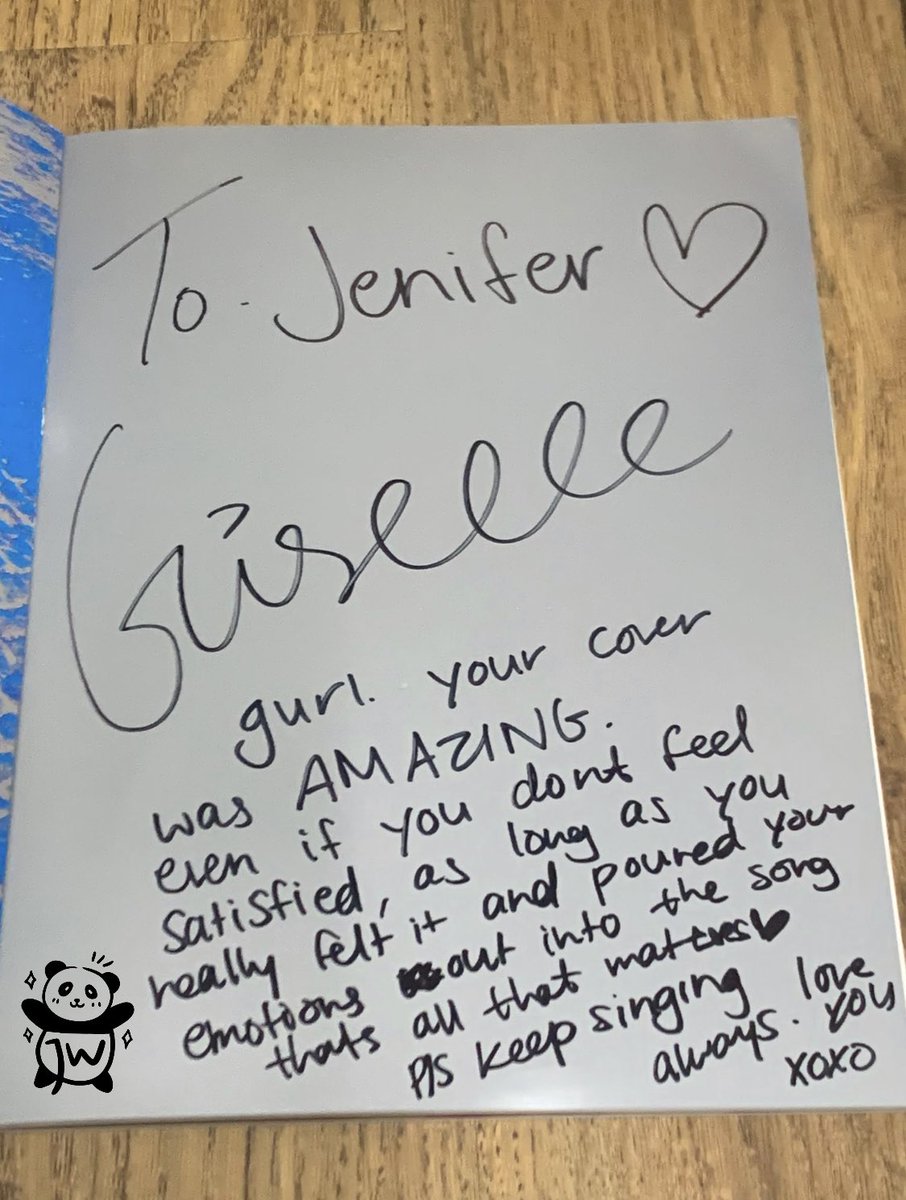 To. Jenifer ♡
Giselle
gurl. your cover
was AMAZING.
even if you dont feel
satisfied, as long as you
really felt it and poured your
emotions out into the song
thats all that mattres♥
P/S keep singing love
always. you
xoxo
JW